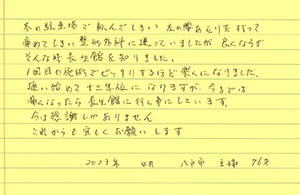 冬の駐車場で転んでしまい 左の腰あたりを打って
痛めてしまい整形外科に通っていましたが 良くならず
そんな時 長生館を知りました。
1回目の施術でビックリするほど楽になりました。
通い始めて十三年位になりますが、今までは
痛くなったら長生館に行く事にしています。
今は感謝しかありません
これからも宜しくお願いします
2023年 4月 八戸市 主婦 76才